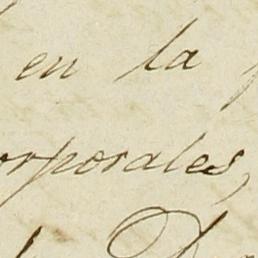 en la
orporales,